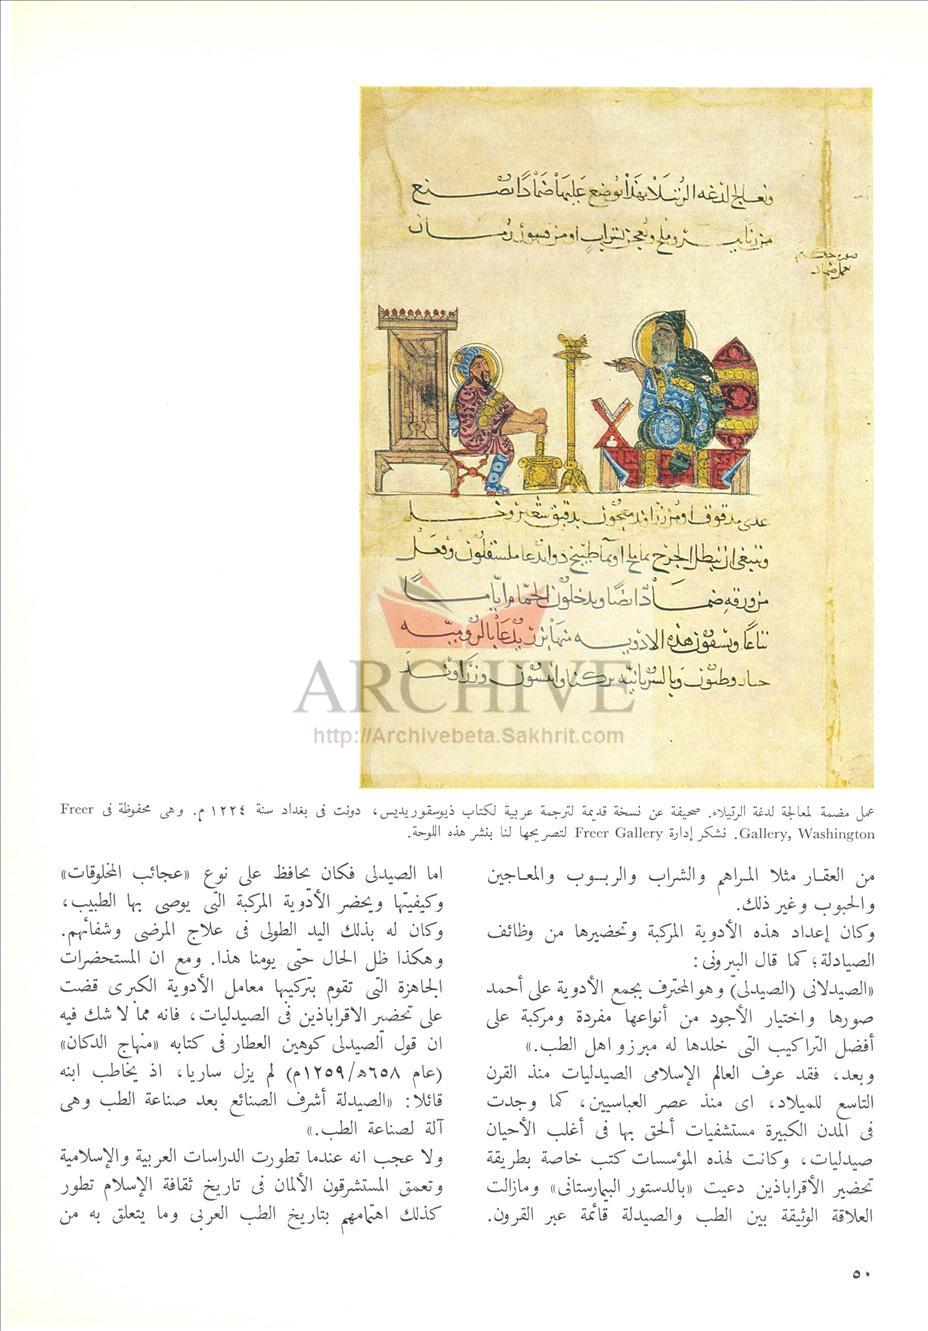 وتعالج لدغه الرتيلا بهذا بوضع عليها ضمادًا يصنع
من رماد وملح ويعجن بشراب او من قشور رمان
صوره حكيم
يعمل ضماد
مدقوق او من زراوند معجون بدقيق شعير وخل
وينبغى ان ينطل الجرح بما ملح او بما طبيخ
من ورقه ضمادًا ايضًا ويدخلون الحمام ايامًا
تباعًا ويسقون هذه الادويه
وبالسريانيه وانيسون وزراوند
ARCHIVE
http://Archivebeta.Sakhrit.com
عمل مضمة لمعالجة لدغة الرتيلاء. صحيفة عن نسخة قديمة لترجمة عربية لكتاب ذيوسقوريديس، دونت فى بغداد سنة ١٢٢٤ م. وهى محفوظة فى Freer
Gallery, Washington. نشكر إدارة Freer Gallery لتصريحها لنا بنشر هذه اللوحة.
من العقـار مثلا المـراهم والشراب والربـوب والمعـاجين
والحبوب وغير ذلك.
وكان إعداد هذه الأدوية المركبة وتحضيرها من وظائف
الصيادلة؛ كما قال البيرونى:
«الصيدلانى (الصيدلىّ) وهو المحترف بجمع الأدوية على أحمد
صورها واختيار الأجود من أنواعها مفردة ومركبة على
أفضل التراكيب التى خلدها له مبرزو اهل الطب.»
وبعد، فقد عرف العالم الإسلامى الصيدليات منذ القرن
التاسع للميلاد، اى منذ عصر العباسيين، كما وجدت
فى المدن الكبيرة مستشفيات ألحق بها فى أغلب الأحيان
صيدليات، وكانت لهذه المؤسسات كتب خاصة بطريقة
تحضير الأقراباذين دعيت «بالدستور البيمارستانى» ومازالت
العلاقة الوثيقة بين الطب والصيدلة قائمة عبر القرون.
اما الصيدلى فكان يحافظ على نوع «عجائب المخلوقات»
وكيفيتها ويحضر الأدوية المركبة التى يوصى بها الطبيب،
وكان له بذلك اليد الطولى فى علاج المرضى وشفائهم.
وهكذا ظل الحال حتّى يومنا هذا. ومع ان المستحضرات
الجاهزة التّى تقوم بتركيبها معامل الأدوية الكبرى قضت
على تحضير الاقراباذين فى الصيدليات، فانه مما لا شك فيه
ان قول الصيدلى كوهين العطار فى كتابه «منهاج الدكان»
(عام ٦٥٨ﻫ/١٢٥٩م) لم يزل ساريا، اذ يخاطب ابنه
قائلا: «الصيدلة أشرف الصنائع بعد صناعة الطب وهى
آلة لصناعة الطب.»
ولا عجب انه عندما تطورت الدراسات العربية والإسلامية
وتعمق المستشرقون الألمان فى تاريخ ثقافة الإسلام تطور
كذلك اهتمامهم بتاريخ الطب العربى وما يتعلق به من
٥٠